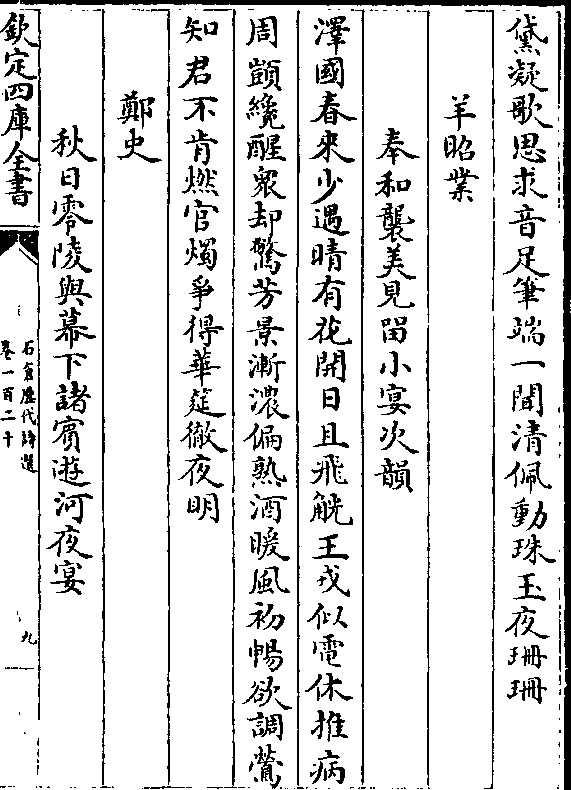 黛凝歌思求音足筆端一聞清佩動珠玉夜珊珊
羊昭業
奉和襲美見留小宴次韻
澤國春來少遇晴有花開日且飛觥王戎似電休推病
周顗纔醒衆却驚芳景漸濃偏熟酒暖風初暢欲調鶯
知君不肯燃官燭爭得華筵徹夜明
鄭史
秋日零陵與幕下諸賓遊河夜宴
欽定四庫全書
石倉歷代詩選
卷一百二十
九